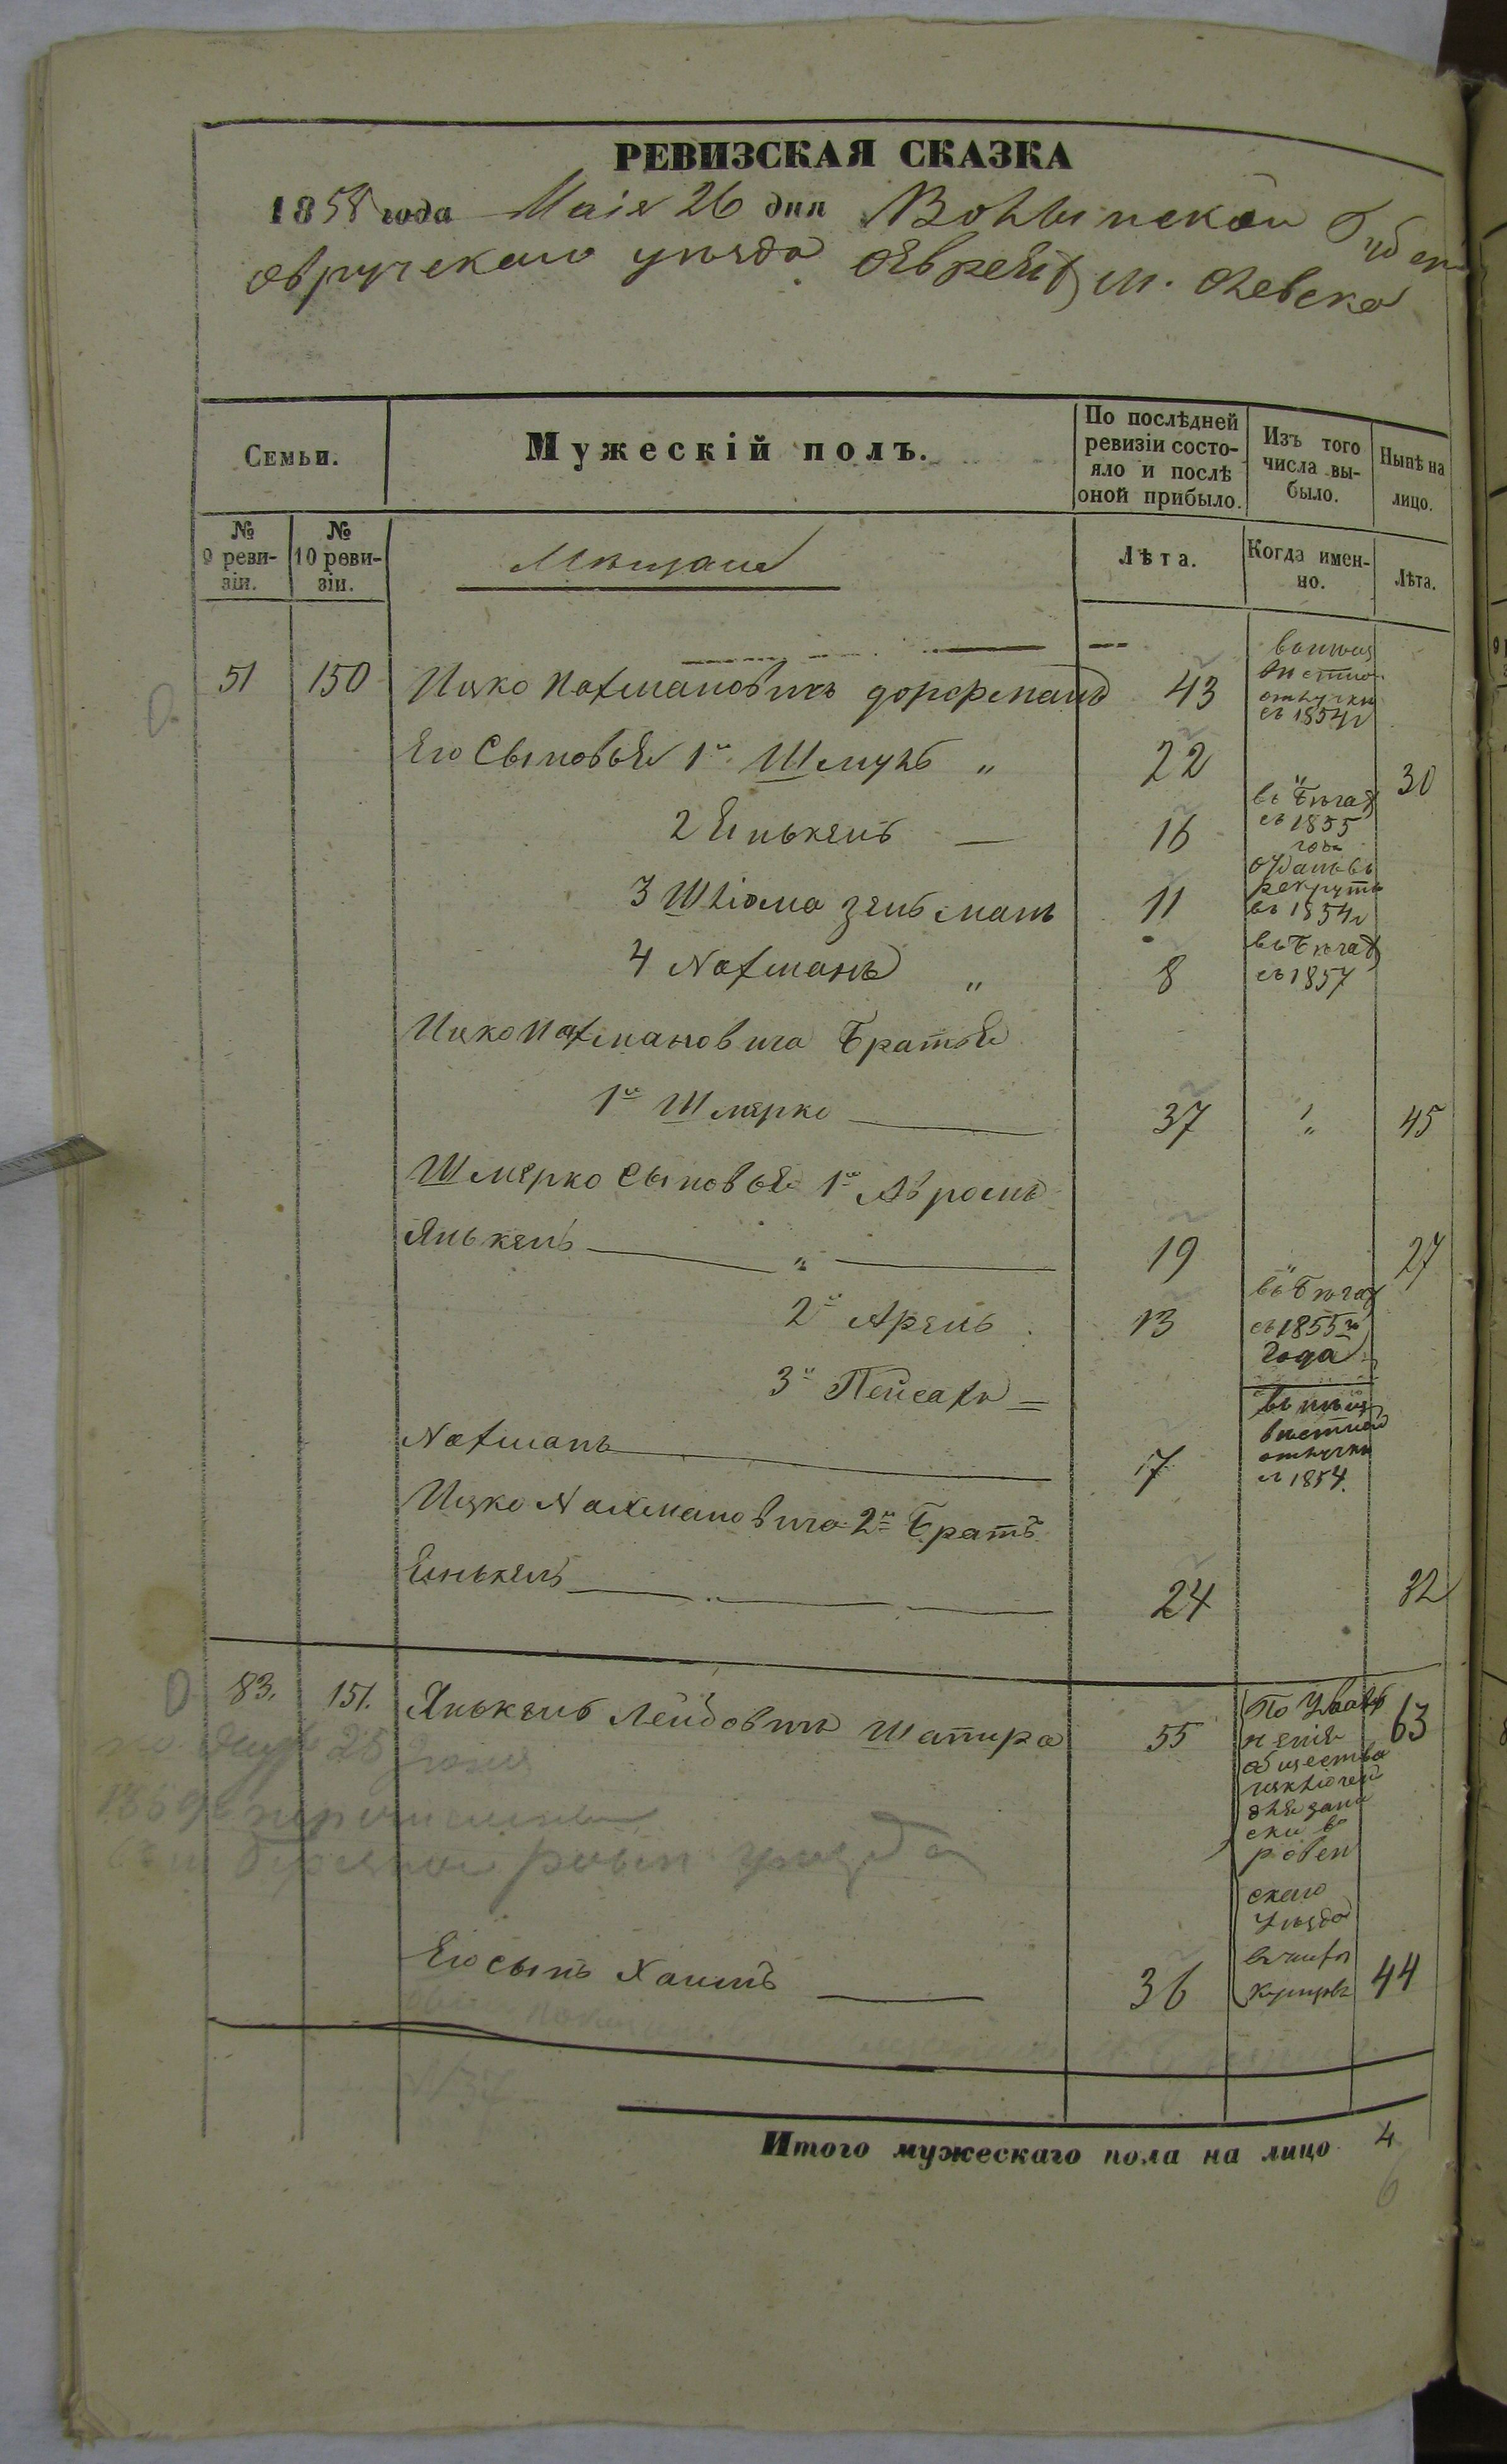 РЕВИЗСКАЯ СКАЗКА
1858 года Маія 26 дня Волынской Губерн
Овручскаго уѣзда Евреевъ м. Олевска
Семьи.
Мужескій полъ.
По послѣдней ревизіи состо-
яло и послѣ
оной прибыло.
Изъ того
числа вы-
было.
Нынѣ на
лицо.
№
9 реви-
зіи.
№
10 реви-
зіи.
Мѣщане
Лѣта.
Когда имен-
но.
Лѣта.
51 150 Ицко Нахмановичъ Дорфманъ 43
отлучки
съ 1854г
Его Сыновья 1й Шмуль " 22 " 30
2 Янькель — 16 въ бѣгахъ
съ 1855
года
3 Шліома Зельманъ 11 отданъ въ
рекруты
въ 1854г
4 Нахманъ " 8 въ бѣгахъ
съ 1857
Ицко Нахмановича Братья
1й Шмерко 37 " 45
Шмерко Сыновья 1й Авромъ
Янькель " 19 " 27
2й Арель 13 въ бѣгахъ
съ 1855го
года
3й Пейсахъ
Нахманъ 17
отлучки
съ 1854.
Ицко Нахмановича 2й Братъ
Янькель 24 32
83. 151. Янькель Лейбовичъ Шапира 55 63
По
общества
ровен
скаго
Уѣзда
28 Іюня
ровен уѣзда
Его сынъ Хаимъ 36 44
купцовъ
Итого мужескаго пола на лицо 4
6